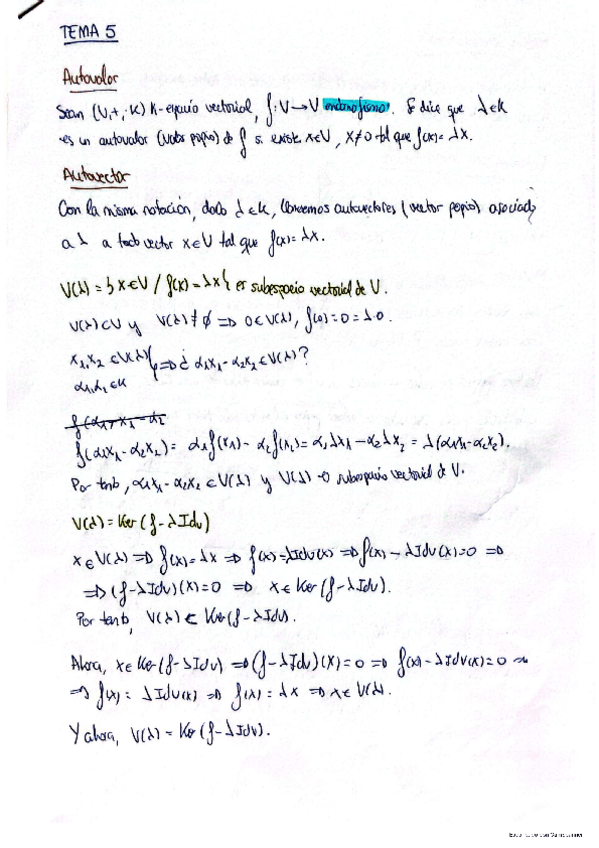 TEMA 5
Autovalor
Sean (V,+,·K) K-espacio vectorial, f: V → V endomorfismo. Se dice que λ∈K
es un autovalor (valor propio) de f si existe x∈V, x≠0 tal que f(x)=λx.
Autovector
Con la misma notación, dado λ∈K, llamaremos autovectores (vector propio) asociado
a λ a todo vector x∈V tal que f(x)=λx.
V(λ) = {x∈V / f(x)=λx} es subespacio vectorial de V.
V(λ)⊂V y V(λ)≠∅ ⇒ 0∈V(λ), f(0)=0=λ·0.
x₁,x₂ ∈V(λ)
α₁,α₂∈K } ⇒ ¿ α₁x₁-α₂x₂∈V(λ)?
f(α₁x₁-α₂x₂)= α₁f(x₁)- α₂f(x₂)= α₁λx₁-α₂λx₂ = λ(α₁x₁-α₂x₂).
Por tanto, α₁x₁-α₂x₂ ∈V(λ) y V(λ) es subespacio vectorial de V.
V(λ)= Ker (f-λIdv)
x∈V(λ) ⇒ f(x)=λx ⇒ f(x)=λIdv(x) ⇒ f(x)-λIdv(x)=0 ⇒
⇒ (f-λIdv)(x)=0 ⇒ x∈Ker (f-λIdv).
Por tanto, V(λ) ⊂ Ker(f-λIdv).
Ahora, x∈Ker(f-λIdv) ⇒ (f-λIdv)(x)=0 ⇒ f(x)-λIdv(x)=0 ⇒
⇒ f(x)= λIdv(x) ⇒ f(x)=λx ⇒ x∈V(λ).
Y ahora, V(λ)= Ker (f-λIdv).